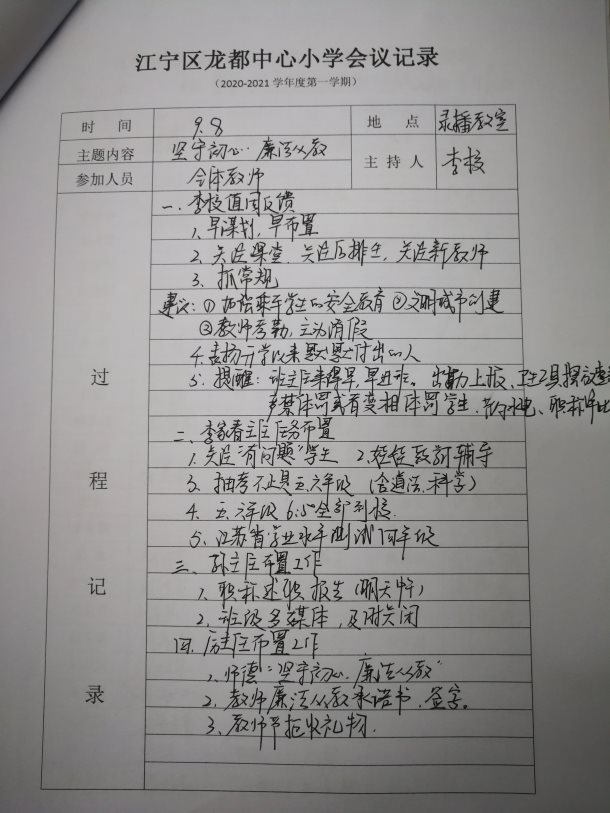 江宁区龙都中心小学会议记录
(2020-2021 学年度第一学期)
时 间 9.8 地 点 录播教室
主题内容 坚守初心·廉洁从教 主 持 人 李校
参加人员 全体教师
过 程 记 录
一. 李校值周反馈
1. 早谋划,早布置
2. 关注课堂. 关注后排生, 关注新教师
3. 抓常规
建议: ① 加强乘车学生的安全教育 ② 文明城市创建
③ 教师考勤, 主动消假
4. 表扬开学以来默默付出的人
5. 提醒: 班主任来得早, 早进班. 出勤上报、卫生工具摆放
严禁体罚或者变相体罚学生, 节约水电、职称评比
二. 李家春主任任务布置
1. 关注“有问题”学生 2.
3. 抽考不止是五.六年级 (含道法.科学)
4. 五.六年级 6:50全部到校.
5. 江苏省学业水平测试 四年级
三. 孙主任布置工作
1. 职称述职报告 (明天中午)
2. 班级多媒体, 及时关闭
四. 主任布置工作
1. 师德: “坚守初心. 廉洁从教”
2. 教师廉洁从教承诺书. 签字。
3. 教师节拒收礼物.